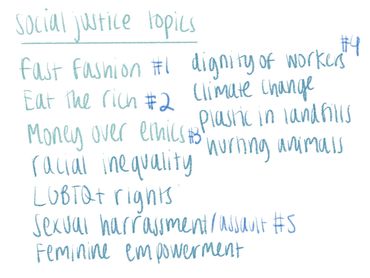 social justice topics
fast fashion #1
Eat the rich #2
Money over ethics #3
racial inequality
LGBTQ+ rights
Sexual harrassment/assault #5
Feminine empowerment
dignity of workers #4
climate change
plastic in landfills
hurting animals